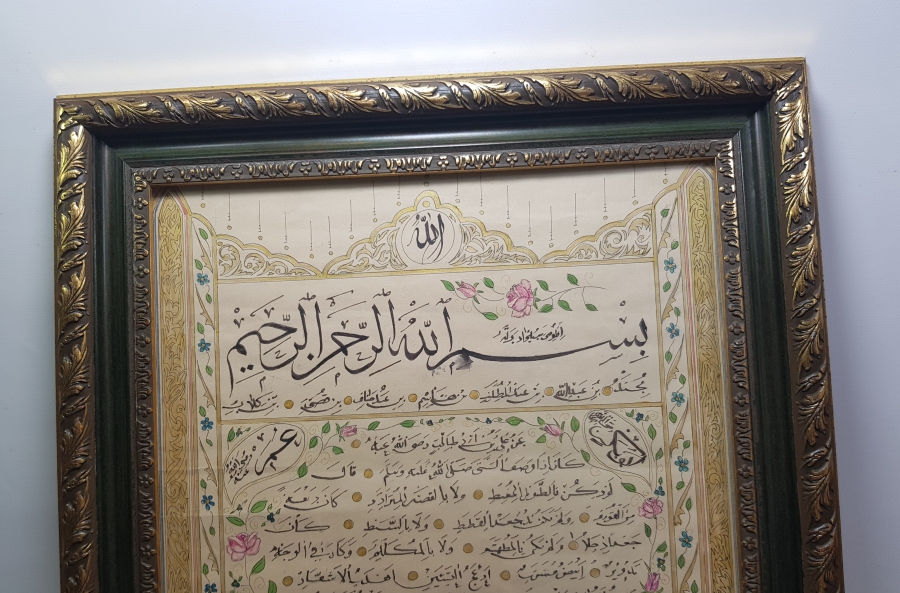 الله
بسم الله الرحمن الرحيم
محمد بن عبد الله بن عبد المطلب بن هاشم بن عبد مناف بن قصي بن كلاب
عمر رضي الله عنه
عن علي بن أبي طالب رضي الله عنه
كان إذا وصف النبي صلى الله عليه وسلم قال
لم يكن بالطويل الممغط ولا بالقصير المتردد وكان ربعة
من القوم ولم يكن بالجعد القطط ولا بالسبط كان
جعدا رجلا ولم يكن بالمطهم ولا بالمكلثم وكان في الوجه
تدوير أبيض مشرب أدعج العينين أهدب الأشفار